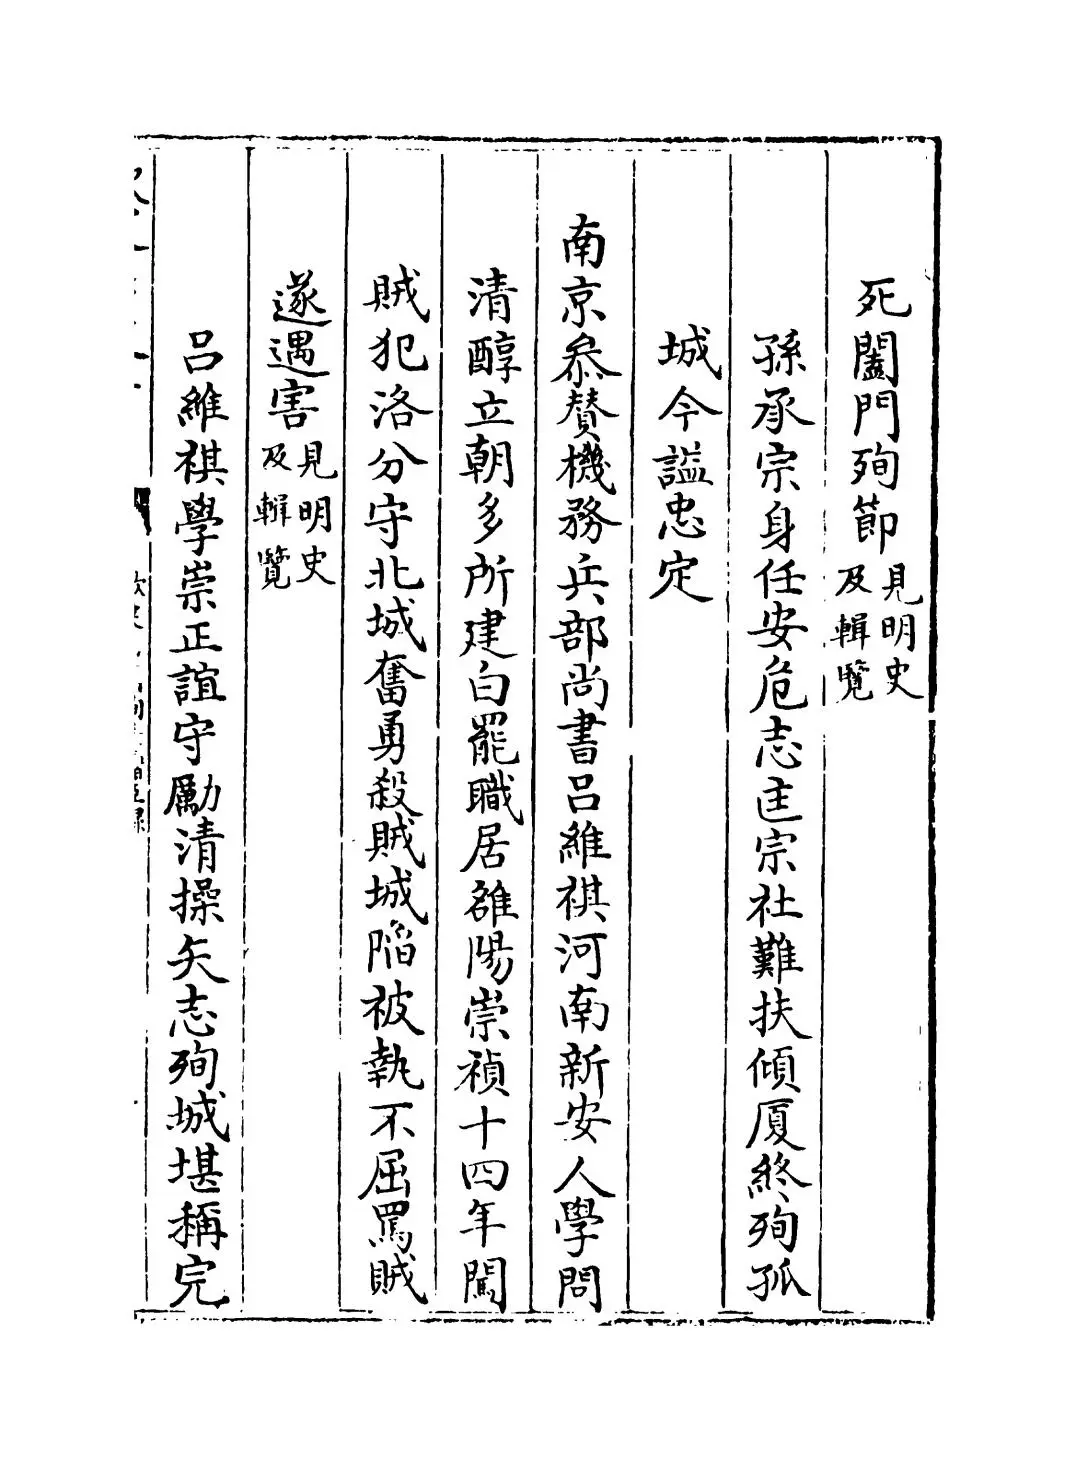 死闔門殉節見明史及輯覽
孫承宗身任安危志匡宗社難扶傾厦終殉孤
城今謚忠定
南京叅贊機務兵部尚書呂維祺河南新安人學問
清醇立朝多所建白罷職居雒陽崇禎十四年闖
賊犯洛分守北城奮勇殺賊城陷被執不屈罵賊
遂遇害見明史及輯覽
呂維祺學崇正誼守勵清操矢志殉城堪稱完